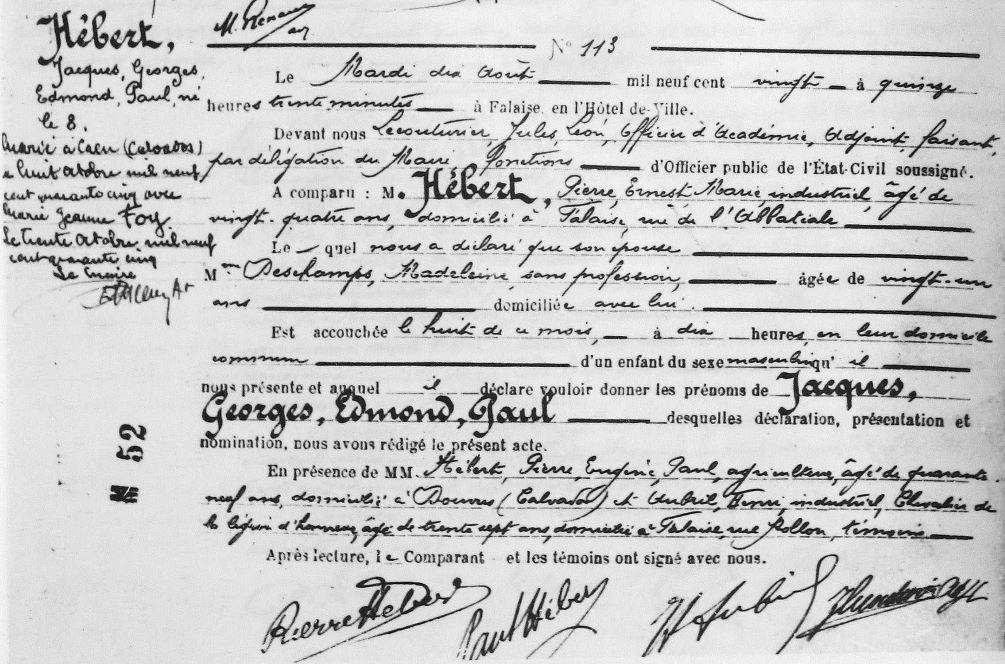 Hébert,
Jacques, Georges,
Edmond, Paul, né
le 8.
Marié à Caen (Calvados)
le huit octobre mil neuf
cent quarante cinq avec
Marie Jeanne Foy
Le trente octobre mil neuf
cent quarante cinq
Le
N° 113
Le Mardi dix Août mil neuf cent vingt à quinze
heures trente minutes à Falaise, en l'Hôtel-de-Ville.
Devant nous Lecouturier, Jules, Léon, Officier d'Académie, Adjoint, faisant,
par délégation du Maire fonctions d'Officier public de l'État-Civil soussigné.
A comparu : M. Hébert, Pierre, Ernest, Marie, industriel, âgé de
vingt-quatre ans, domicilié à Falaise, rue de l'Abbatiale
Le quel nous a déclaré que son épouse
M en Deschamps, Madeleine, sans profession, âgée de vingt-un
ans domiciliée avec lui.
Est accouchée le huit de ce mois, à dix heures, en leur domicile
commun d'un enfant du sexe masculin qu' il
nous présente et auquel il déclare vouloir donner les prénoms de Jacques,
Georges, Edmond, Paul desquelles déclaration, présentation et
nomination, nous avons rédigé le présent acte.
En présence de MM. Hébert, Pierre, Eugène, Paul, agriculteur, âgé de quarante-
neuf ans, domicilié à Douvres (Calvados) et Henri, industriel, Chevalier de
la légion d'honneur, âgé de trente sept ans, domicilié à Falaise, rue témoins
Après lecture, le Comparant et les témoins ont signé avec nous.
Pierre Hébert Paul Hébert
52